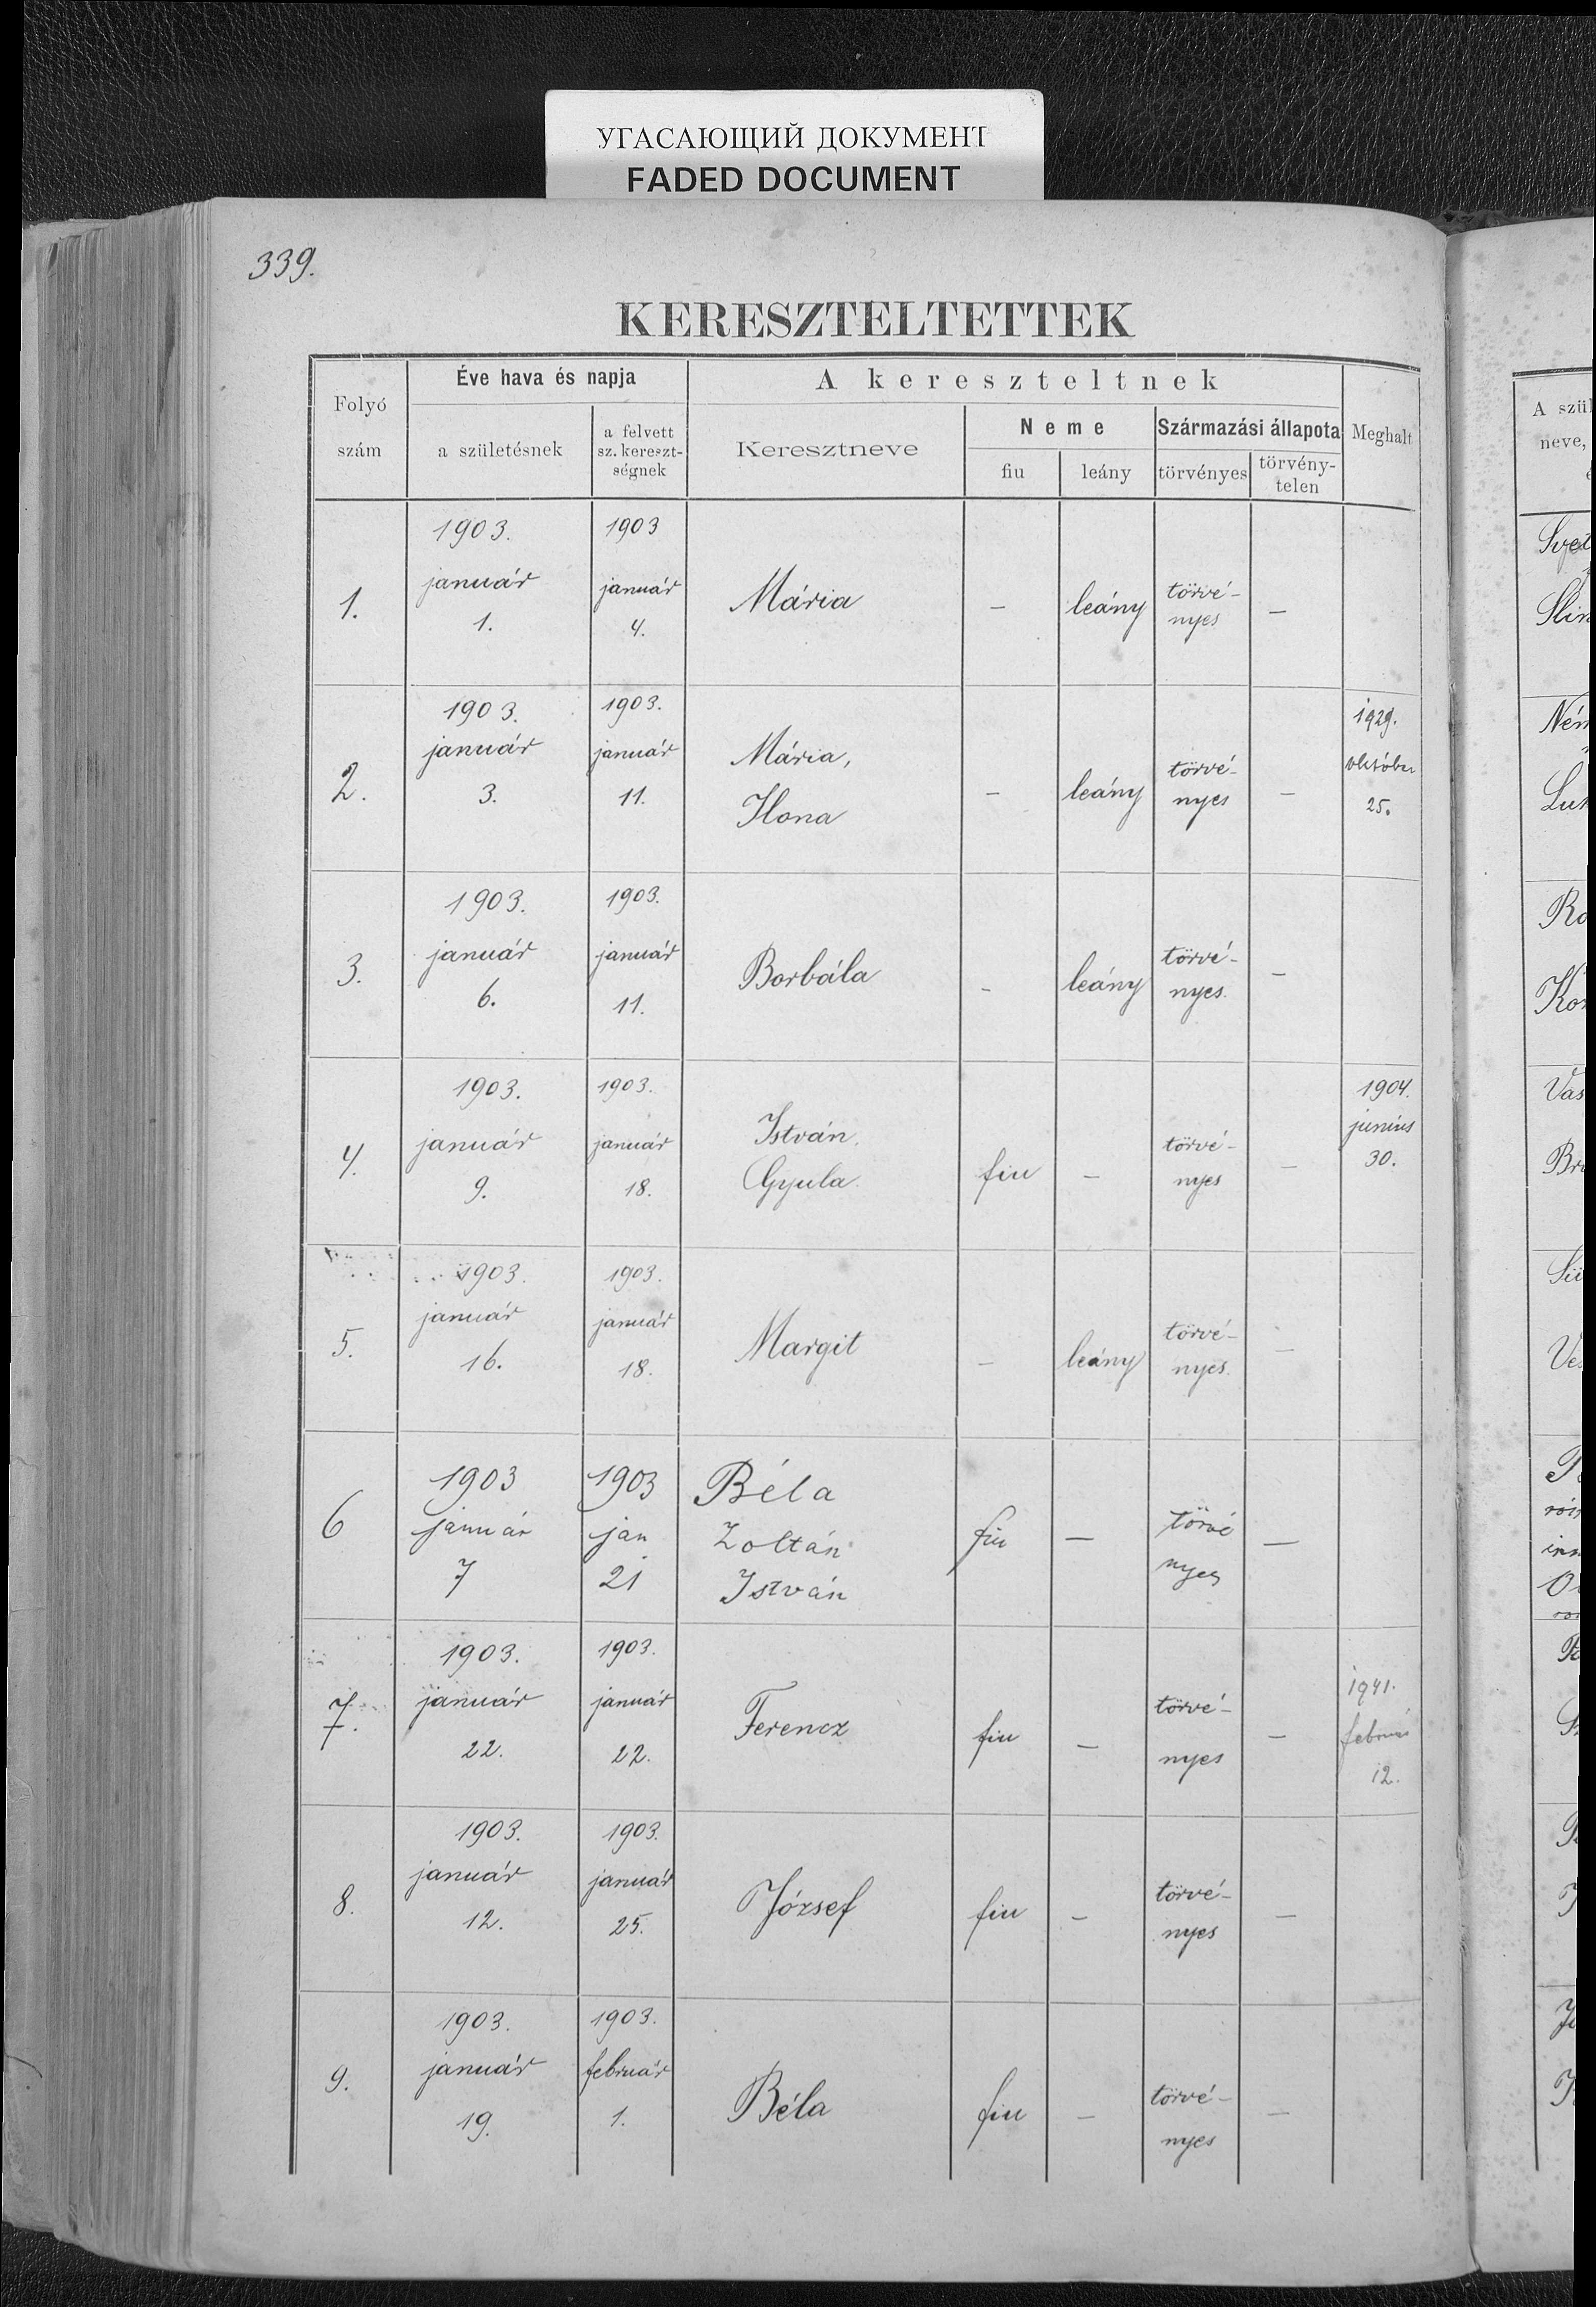 УГАСАЮЩИЙ ДОКУМЕНТ
FADED DOCUMENT
339.
KERESZTELTETTEK
Folyó szám
Éve hava és napja
a születésnek
a felvett sz. kereszt-ségnek
A kereszteltnek
Keresztneve
Neme
fiu
leány
Származási állapota
törvényes
törvény-telen
Meghalt
1.
1903. január 1.
1903 január 4.
Mária
–
leány
törvé-nyes
–
2.
1903. január 3.
1903. január 11.
Mária, Ilona
–
leány
törvé-nyes
–
1929. október 25.
3.
1903. január 6.
1903. január 11.
Borbála
–
leány
törvé-nyes.
–
4.
1903. január 9.
1903. január 18.
István. Gyula.
fiu
–
törvé-nyes
–
1904. junius 30.
5.
1903. január 16.
1903. január 18.
Margit
–
leány
törvé-nyes.
–
6
1903 január 7
1903 jan 21
Béla Zoltán István
fiu
–
törvé nyes
–
7.
1903. január 22.
1903. január 22.
Ferencz
fiu
–
törvé-nyes
–
1941. február 12.
8.
1903. január 12.
1903. január 25.
József
fiu
–
törvé-nyes
–
9.
1903. január 19.
1903. február 1.
Béla
fiu
–
törvé-nyes
–
A szül
neve,